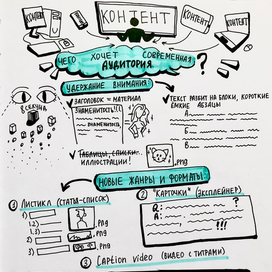 КОНТЕНТ
КОНТЕНТ
КОНТЕНТ
ЧЕГО ХОЧЕТ СОВРЕМЕННАЯ
АУДИТОРИЯ
?
УДЕРЖАНИЕ ВНИМАНИЯ:
ЗАГОЛОВОК = МАТЕРИАЛ
ЗНАМЕНИТОСТЬ!!!
ЗНАМЕНИТОСТЬ
ТЕКСТ РАЗБИТ НА БЛОКИ, КОРОТКИЕ
ЁМКИЕ АБЗАЦЫ
А
Б
В
ТАБЛИЦЫ, СПИСКИ
ИЛЛЮСТРАЦИИ!
.png
НОВЫЕ ЖАНРЫ И ФОРМАТЫ:
① ЛИСТИКЛ (СТАТЬЯ-СПИСОК)
1.)
1.2)
2.)
3.)
.png
.png
.png
② "КАРТОЧКИ" (ЭКСПЛЕЙНЕР)
Q:
?
A:
!!!
③ CAPtion video (ВИДЕО С ТИТРАМИ)